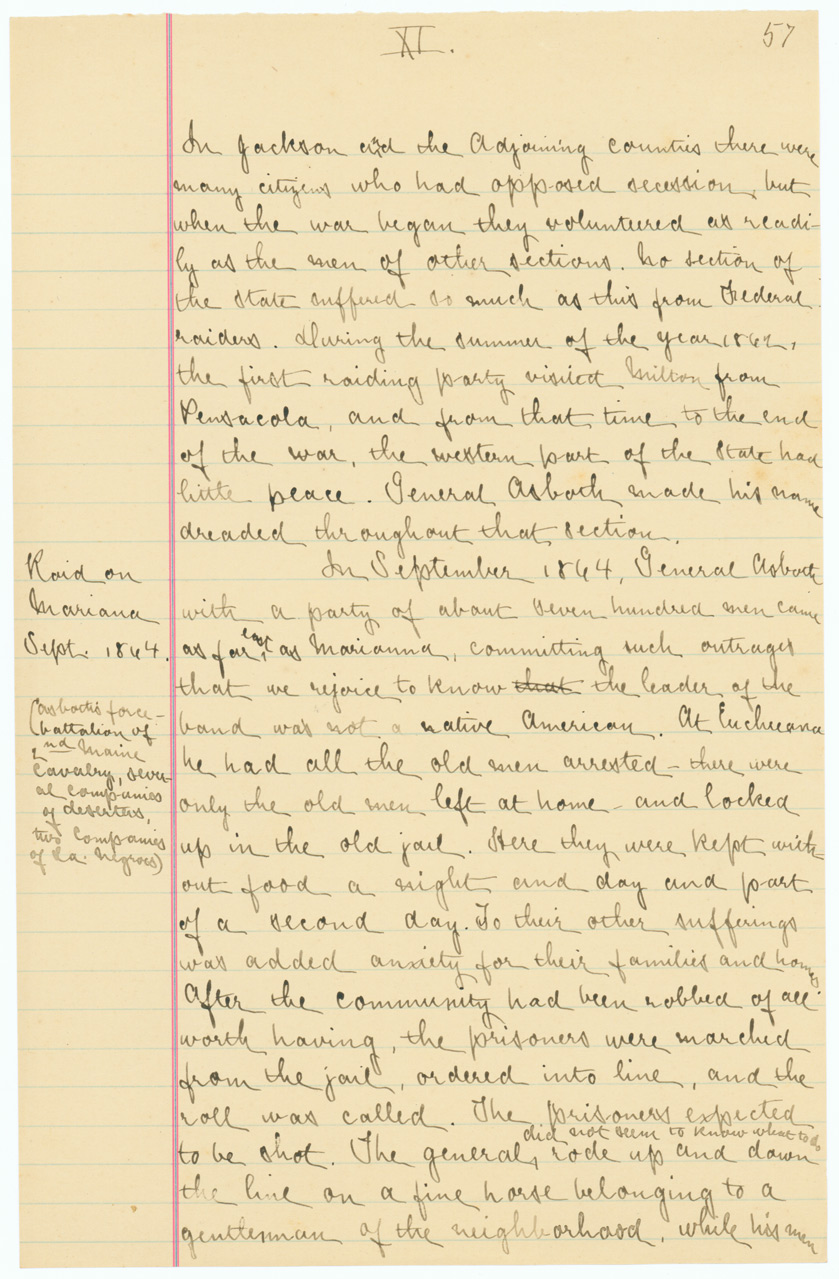 XI.
57
In Jackson and the Adjoining counties there were
many citizens who had opposed secession, but
when the war began they volunteered as readi-
ly as the men of other sections. No section of
the state suffered so much as this from Federal
raiders. During the summer of the year 1862,
the first raiding party visited Milton from
Pensacola, and from that time to the end
of the war, the western part of the State had
little peace. General Asboth made his name
dreaded throughout that section.
Raid on
Mariana
Sept. 1864.
In September 1864, General Asboth
with a party of about seven hundred men came
as far east as Marianna, committing such outrages
that we rejoice to know that the leader of the
band was not a native American. At Eucheeana
he had all the old men arrested - there were
only the old men left at home - and locked
up in the old jail. Here they were kept with-
out food a night and day and part
of a second day. To their other sufferings
was added anxiety for their families and homes.
After the community had been robbed of all
worth having, the prisoners were marched
from the jail, ordered into line, and the
roll was called. The prisoners expected
to be shot. The general did not seem to know what to do, rode up and down
the line on a fine horse belonging to a
gentleman of the neighborhood, while his men
(Asboth's force -
battalion of
2nd Maine
Cavalry, sever-
al companies
of deserters,
two companies
of La. Negroes)